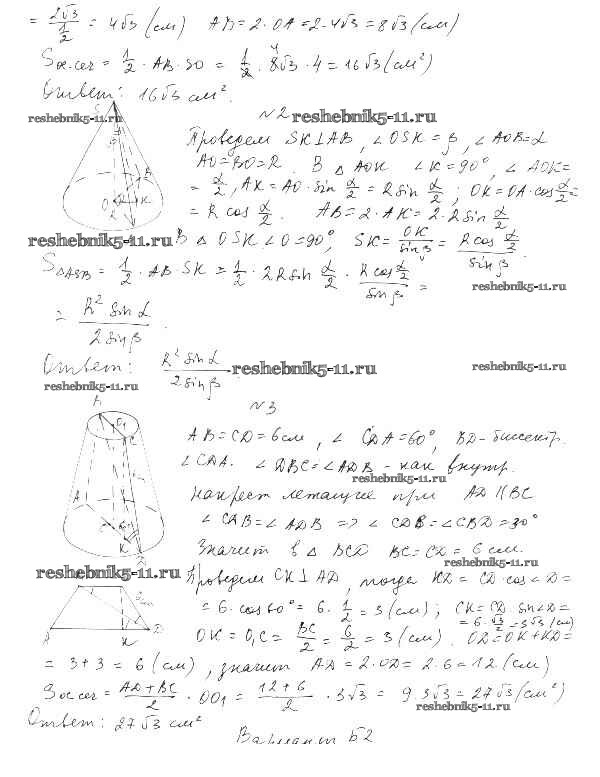 = 2√3 / 1/2 = 4√3 (см) AB = 2·OA = 2·4√3 = 8√3 (см)
Sос.сеч = 1/2 · AB · SO = 1/2 · 8√3 · 4 = 16√3 (см²)
Ответ: 16√3 см².
№2 reshebnik5-11.ru
reshebnik5-11.ru
Проведем SK⊥AB, ∠OSK = β, ∠AOB = α
AO = BO = R. В △AOK ∠K = 90°, ∠AOK =
= α/2, AK = AO · sin α/2 = R sin α/2; OK = OA · cos α/2 =
= R cos α/2. AB = 2·AK = 2·R sin α/2
reshebnik5-11.ru В △OSK ∠O = 90°, SK = OK / sin β = R cos α/2 / sin β.
S△ASB = 1/2 · AB · SK = 1/2 · 2R sin α/2 · R cos α/2 / sin β =
reshebnik5-11.ru
= R² sin α / 2 sin β.
Ответ: R² sin α / 2 sin β. reshebnik5-11.ru
reshebnik5-11.ru
reshebnik5-11.ru
№3
AB = CD = 6 см, ∠CDA = 60°, BD – биссектр.
∠CDA. ∠DBC = ∠ADB – как внутр.
reshebnik5-11.ru
накрест лежащие при AD || BC
∠CDB = ∠ADB => ∠CDB = ∠CBD = 30°
Значит в △BCD BC = CD = 6 см.
reshebnik5-11.ru
reshebnik5-11.ru Проведем CK⊥AD, тогда KD = CD · cos∠D =
= 6 · cos 60° = 6 · 1/2 = 3 (см); CK = CD · sin∠D =
= 6 · √3/2 = 3√3 (см)
OK = O₁C = BC/2 = 6/2 = 3 (см). OD = OK + KD =
= 3 + 3 = 6 (см), значит AD = 2·OD = 2·6 = 12 (см)
Sос.сеч = AD + BC / 2 · OO₁ = 12 + 6 / 2 · 3√3 = 9·3√3 = 27√3 (см²)
reshebnik5-11.ru
Ответ: 27√3 см²
Вариант Б2